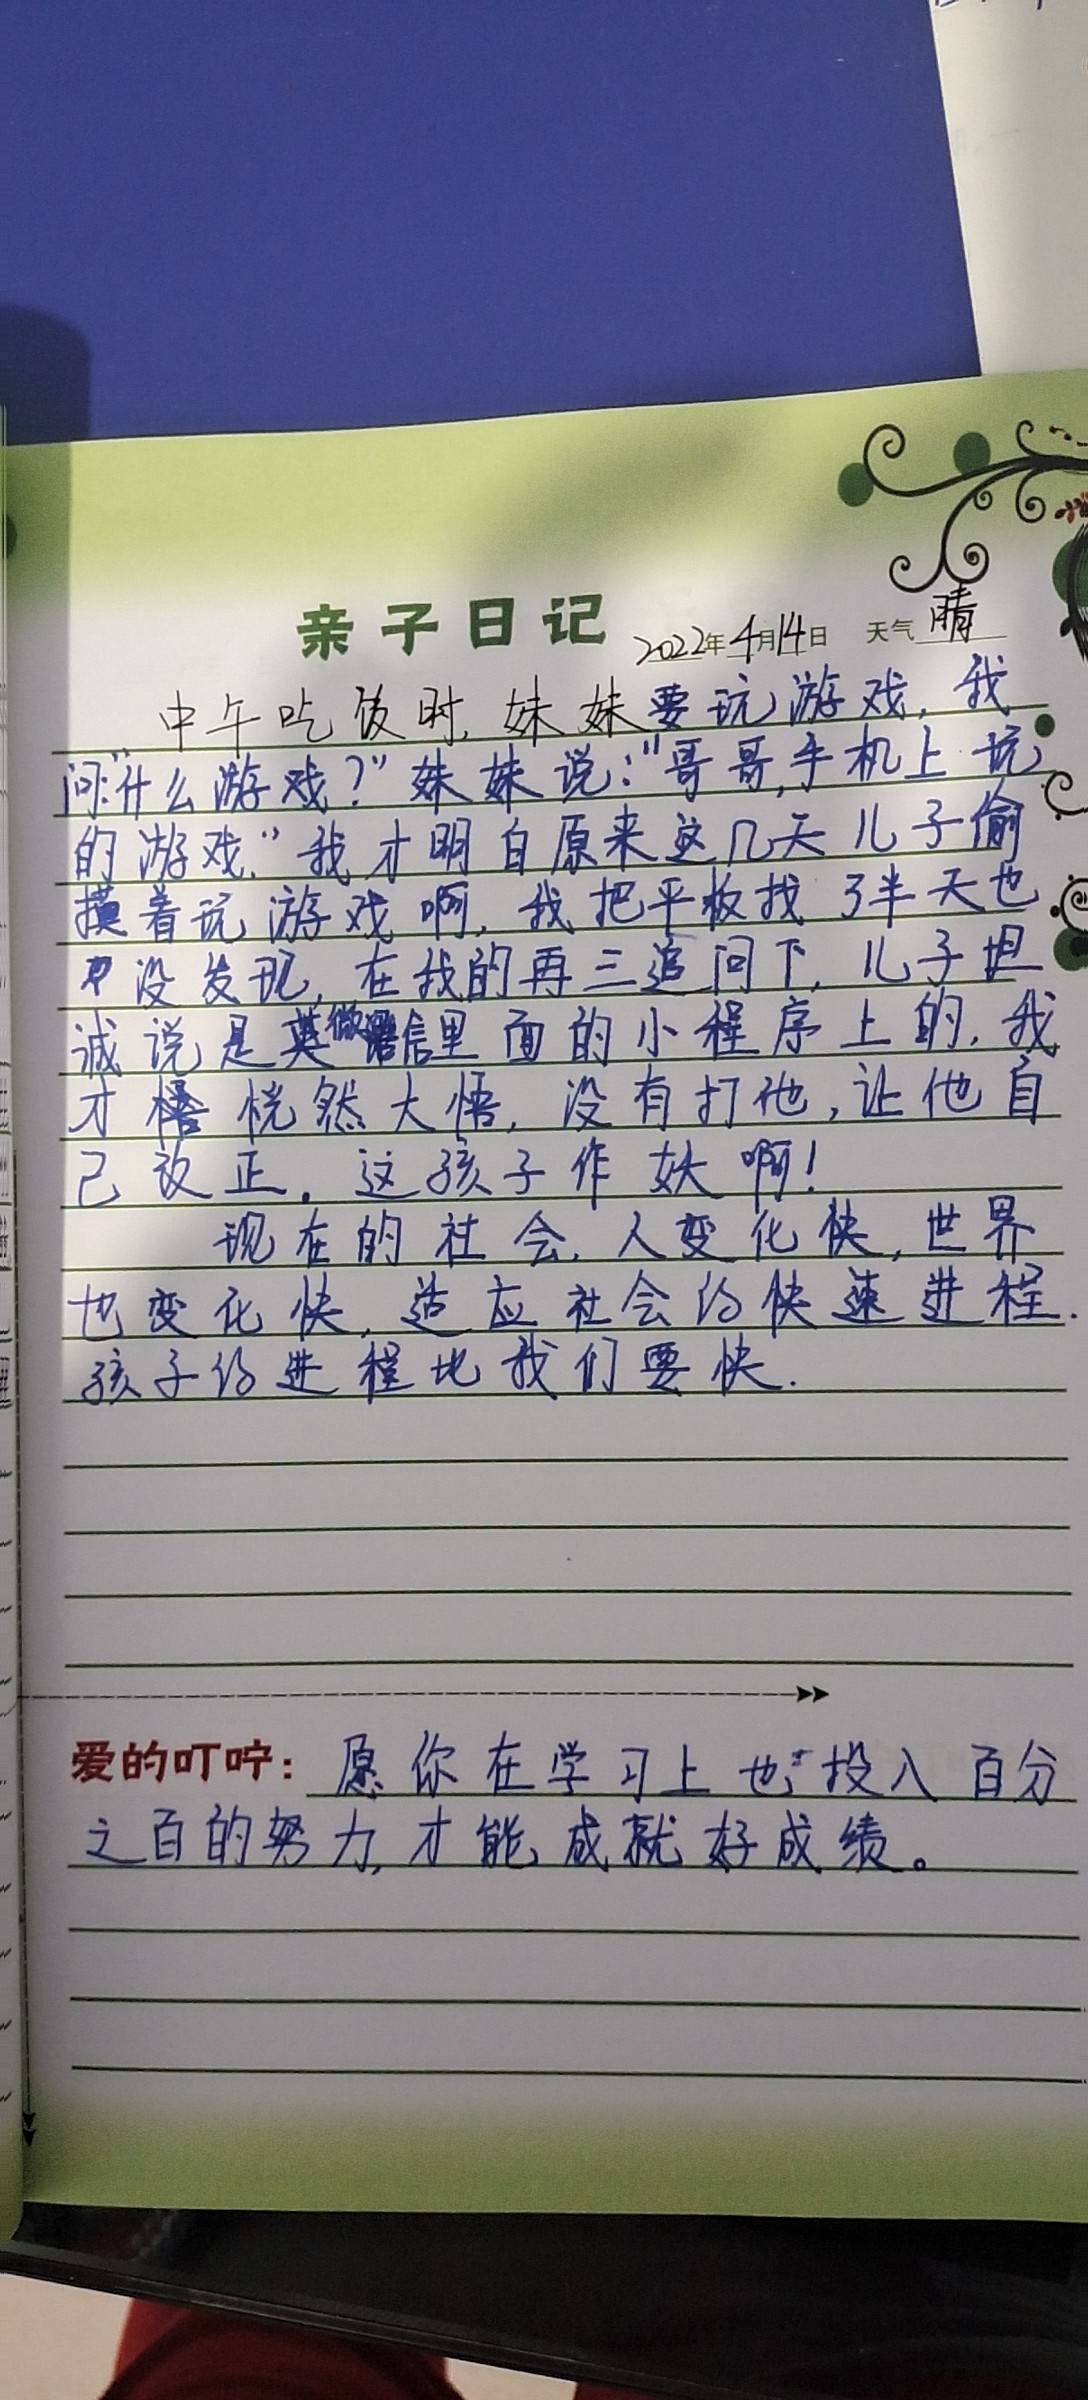 亲子日记 2022年4月14日 天气 晴
中午吃饭时,妹妹要玩游戏,我
问:"什么游戏?"妹妹说:"哥哥,手机上玩
的游戏."我才明白原来这几天儿子偷
摸着玩游戏啊,我把平板找了半天也
没发现,在我的再三追问下,儿子坦
诚说是微信里面的小程序上的,我
才恍然大悟,没有打他,让他自
己改正。这孩子作妖啊!
现在的社会,人变化快,世界
也变化快,适应社会的快速进程.
孩子的进程比我们要快.
爱的叮咛:愿你在学习上也投入百分
之百的努力,才能成就好成绩。